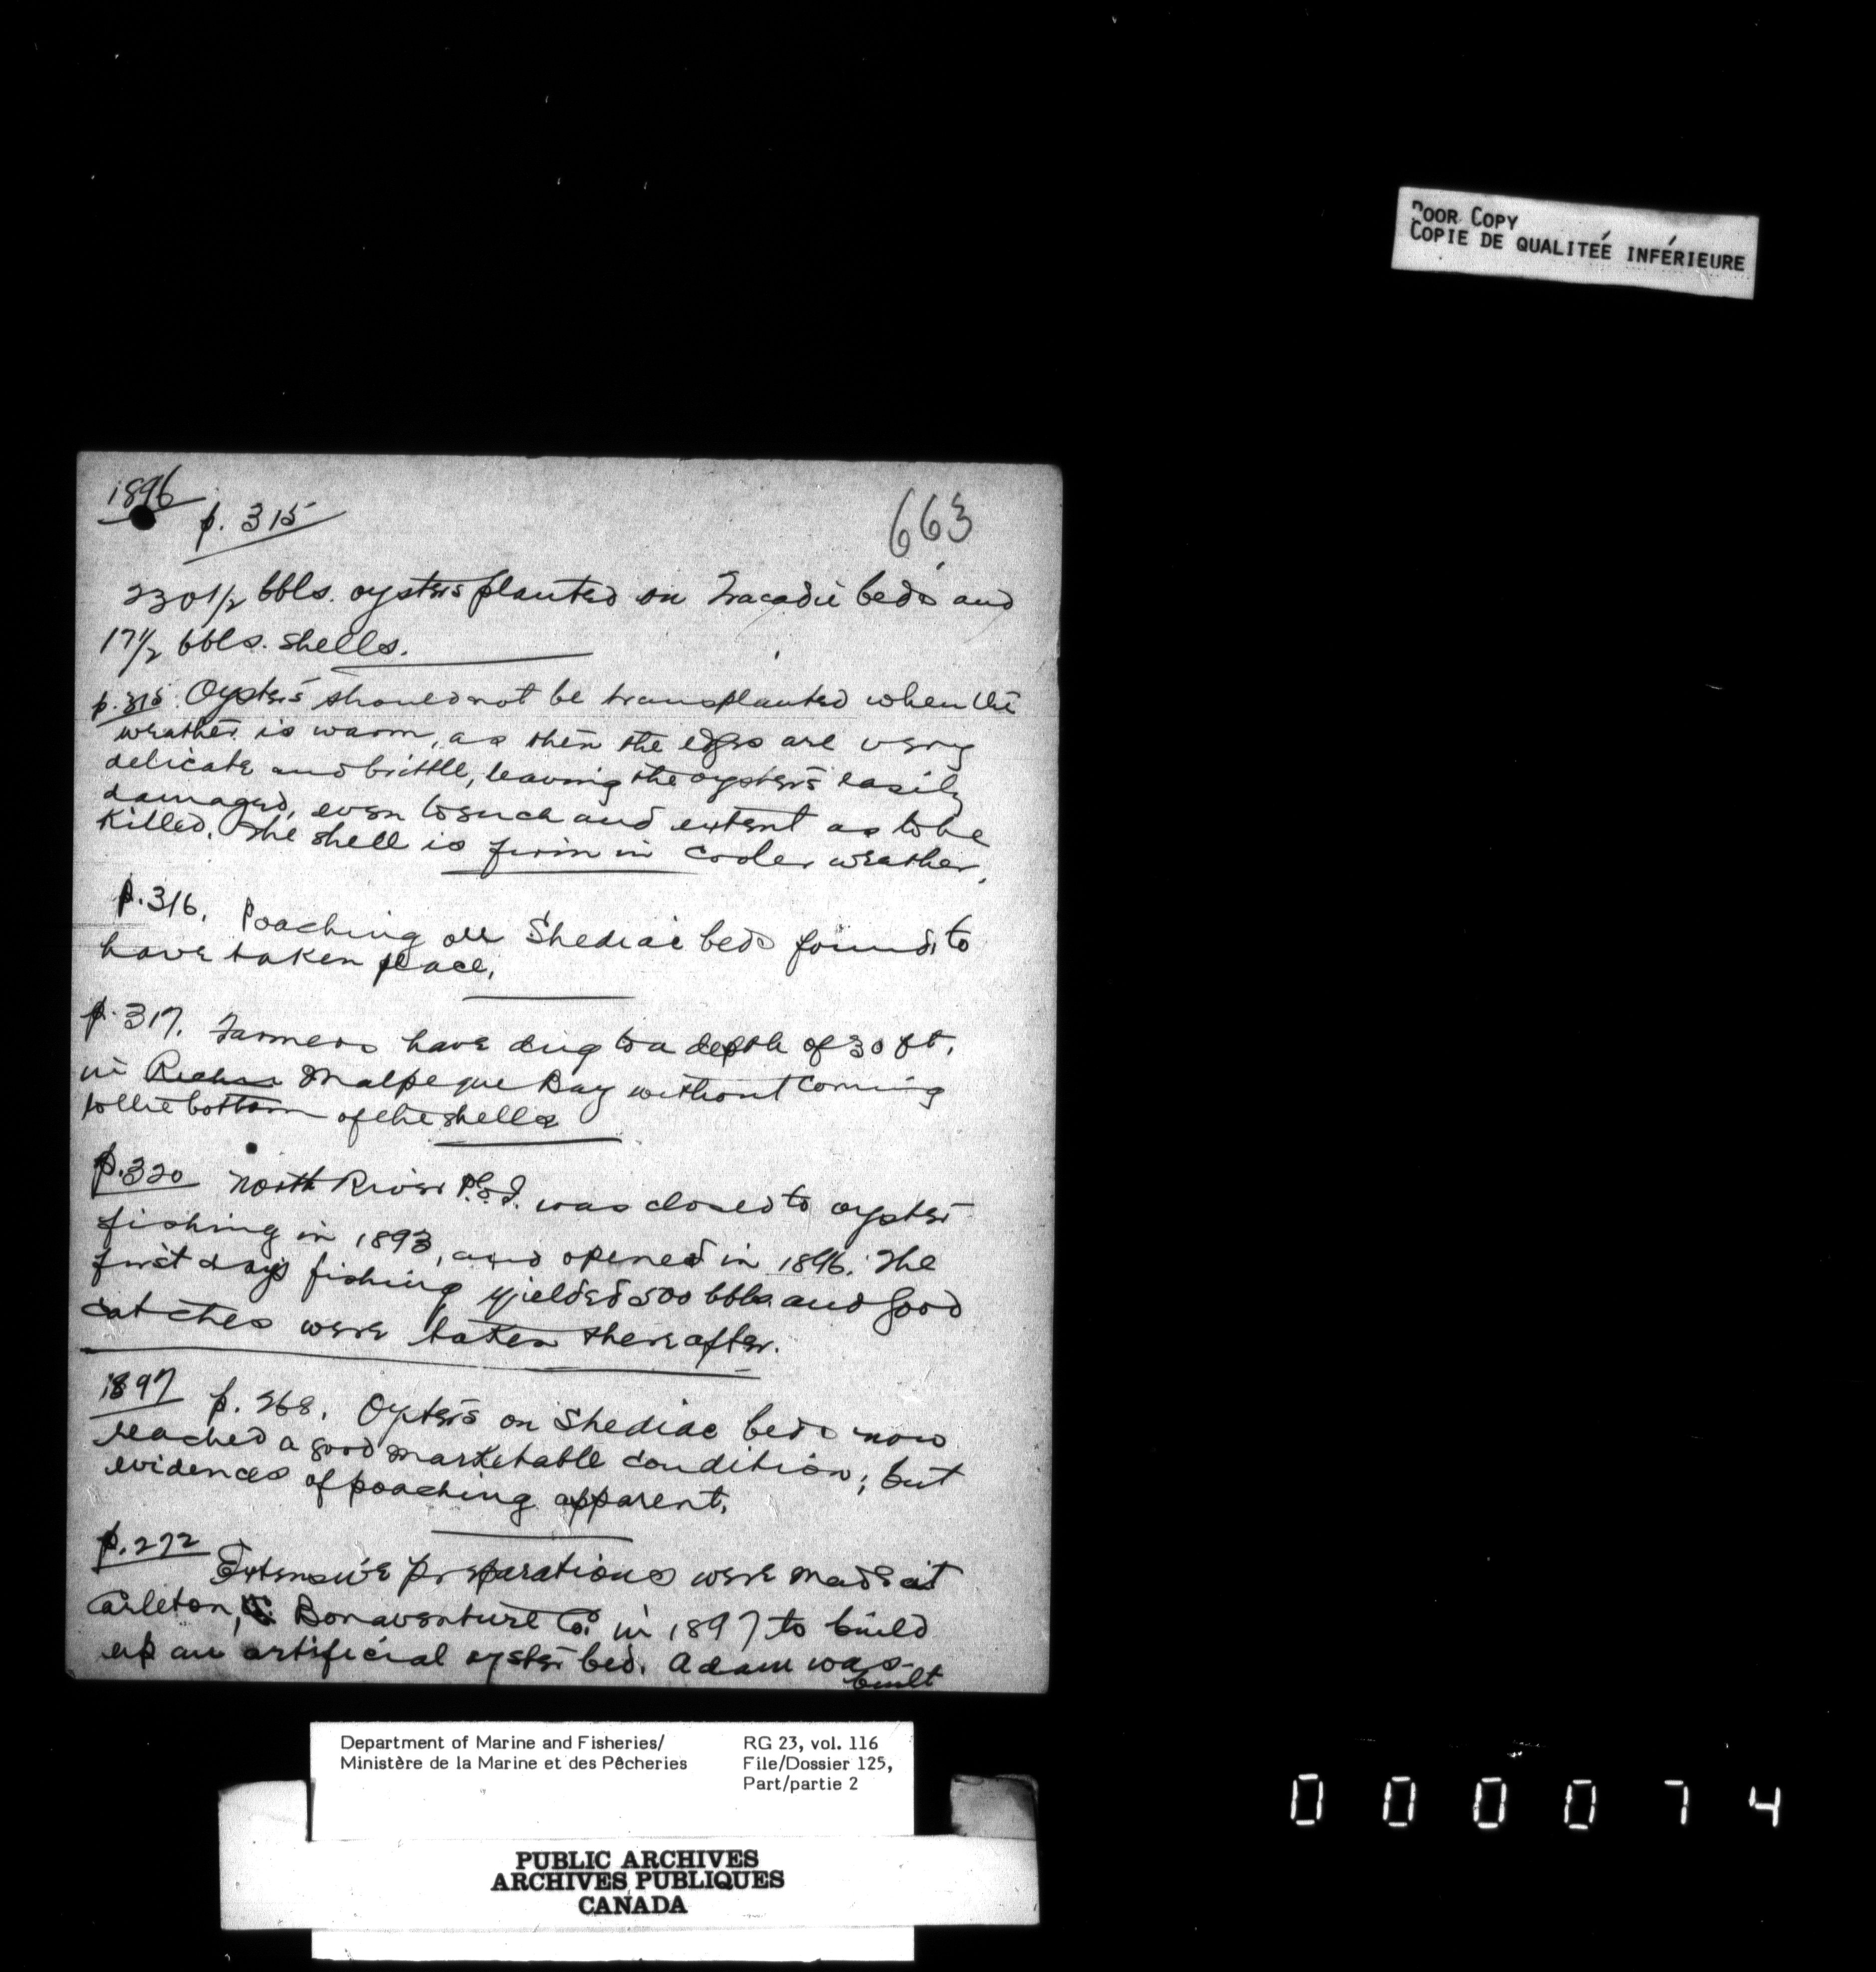 POOR COPY
COPIE DE QUALITEÉ INFÉRIEURE
1896
p. 315
663
230 1/2 bbls. oysters planted on Tracadie beds and
17 1/2 bbls. shells.
p. 315. Oysters should not be transplanted when the
weather is warm, as then the edges are very
delicate and brittle, leaving the oysters easily
damaged, even to such and extent as to be
killed. The shell is firm in cooler weather.
p. 316. Poaching on Shediac beds found to
have taken place.
p. 317. Farmers have dug to a depth of 30 ft.
in Malpeque Bay without coming
to the bottom of the shells
p. 320 North River P.E.I. was closed to oyster
fishing in 1893, and opened in 1896. The
first days fishing yielded 500 bbls and good
catches were taken thereafter.
1897 p. 268. Oysters on Shediac beds now
reached a good marketable condition; but
evidences of poaching apparent.
p. 272 Extensive preparations were made at
Carleton, Bonaventure Co. in 1897 to build
up an artificial oyster bed. A dam was
built
Department of Marine and Fisheries/
Ministère de la Marine et des Pêcheries
RG 23, vol. 116
File/Dossier 125,
Part/partie 2
PUBLIC ARCHIVES
ARCHIVES PUBLIQUES
CANADA
000074